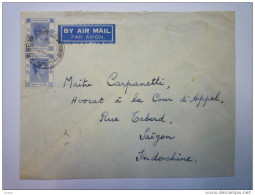 BY AIR MAIL
PAR AVION
Maître Carpanetti,
Avocat à la Cour d'Appel,
Rue Taberd,
Saïgon
Indochine.